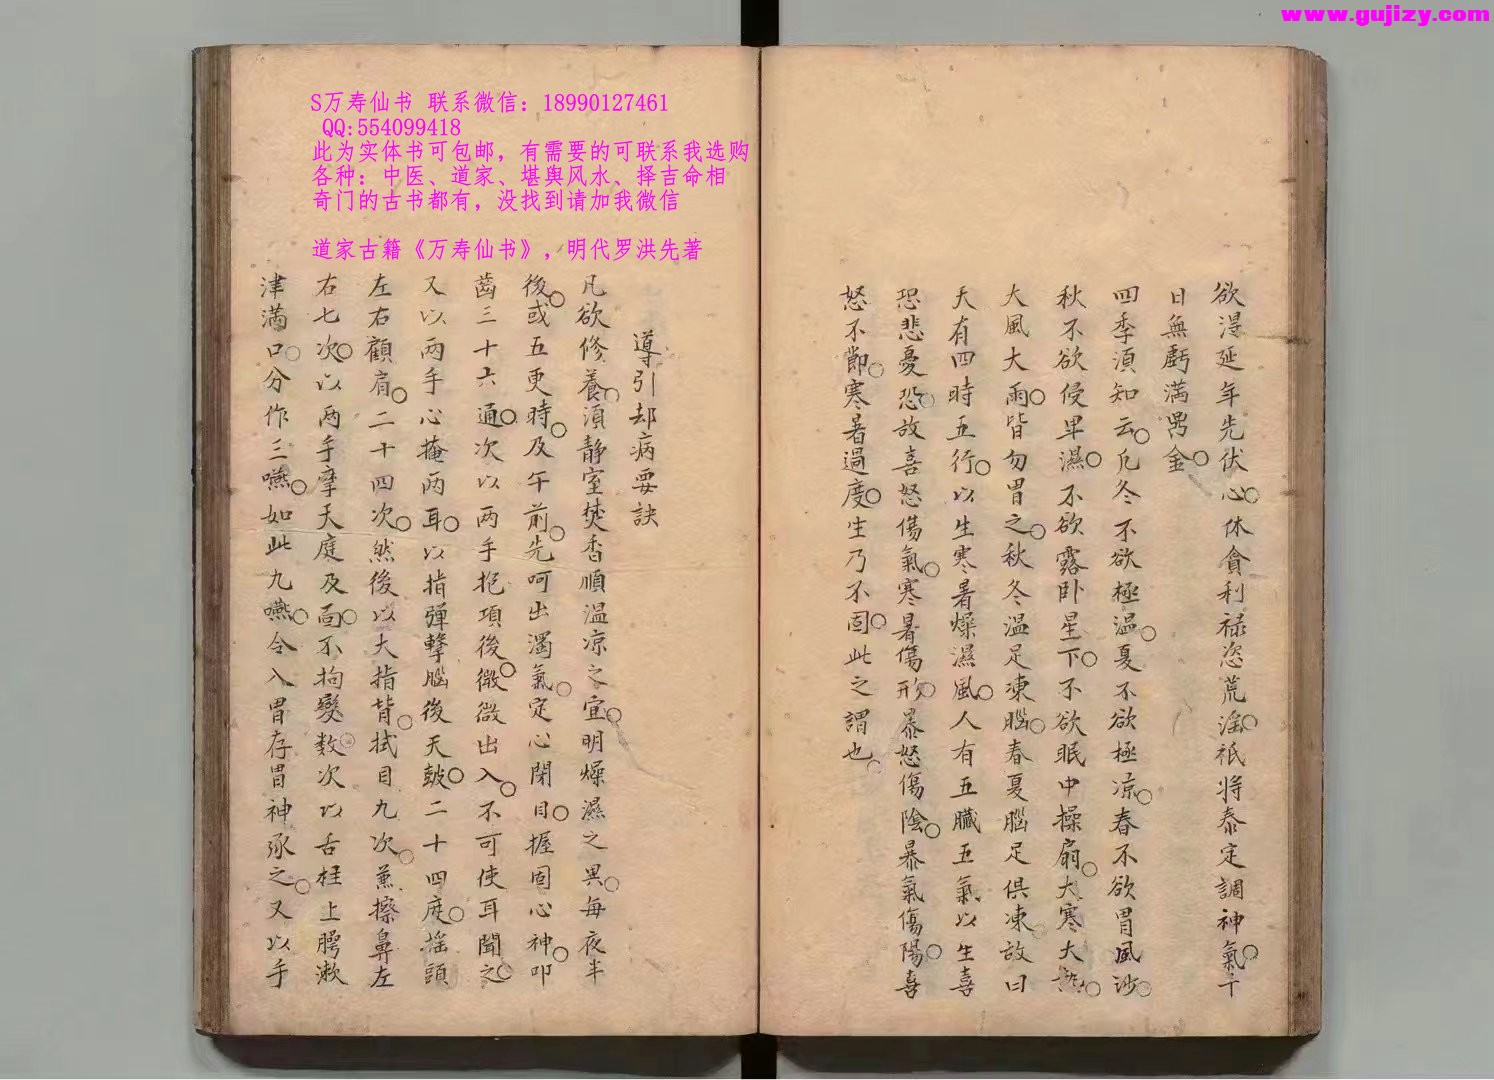 www.gujizy.com
S万寿仙书 联系微信：18990127461
QQ:554099418
此为实体书可包邮，有需要的可联系我选购
各种：中医、道家、堪舆风水、择吉命相
奇门的古书都有，没找到请加我微信
道家古籍《万寿仙书》，明代罗洪先著
欲得延年先伏心休貪利禄恣荒滛祇将泰定調神氣十
日無虧满畧金
四季須知云凢冬不欲極温夏不欲極凉春不欲冒風沙
秋不欲侵早濕不欲露卧星下不欲眠中操扇大寒大熱
大風大雨皆勿冒之秋冬温足凍腦春夏腦足俱凍故曰
天有四時五行以生寒暑燥濕風人有五臟五氣以生喜
怒悲憂恐故喜怒傷氣寒暑傷形暴怒傷陰暴氣傷陽喜
怒不節寒暑過度生乃不固此之謂也
導引却病要訣
凡欲修養須静室焚香順温凉之宜明燥濕之異每夜半
後或五更時及午前先呵出濁氣定心閉目握固心神叩
齒三十六通次以两手抱項後微微出入不可使耳聞之
又以两手心掩两耳以指弾擊腦後天鼓二十四度揺頭
左右顧肩二十四次然後以大指背拭目九次蕙擦鼻左
右七次以两手摩天庭及面不拘發数次以舌柱上腭漱
津满口分作三嚥如此九嚥令入胃存胃神承之又以手